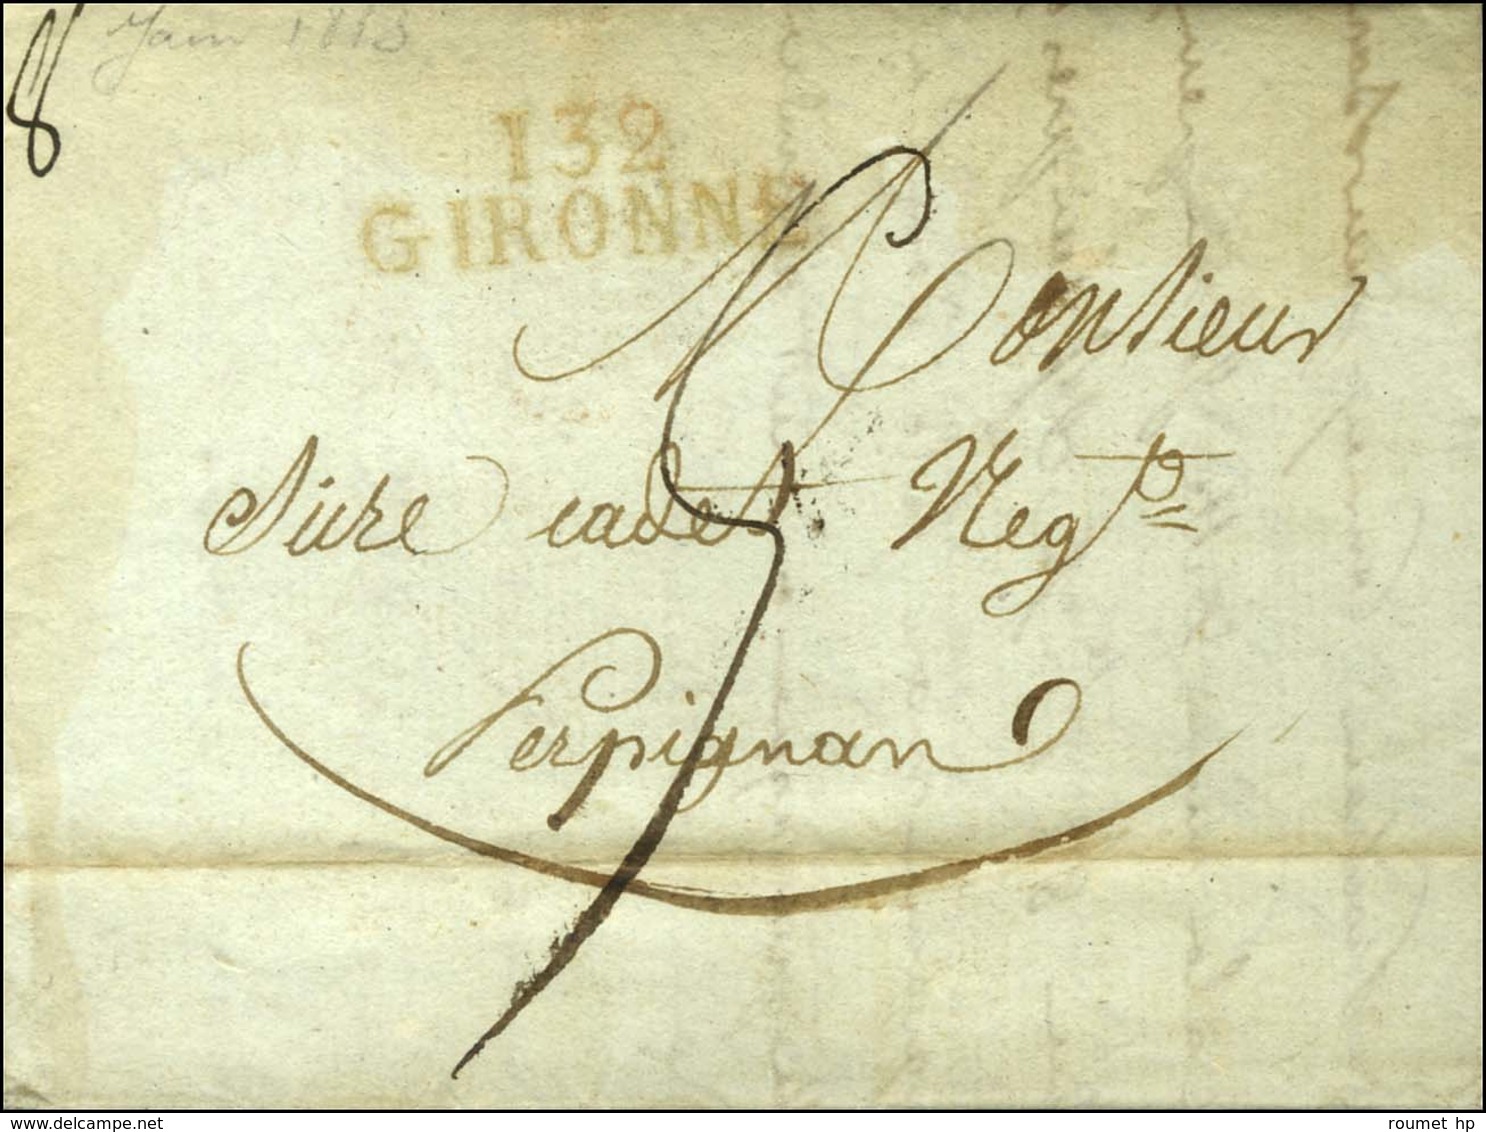 8
Janv 1813
132
GIRONNE
Monsieur
Sicre cadet Negt
Perpignan
5
delcampe.net
roumet hp